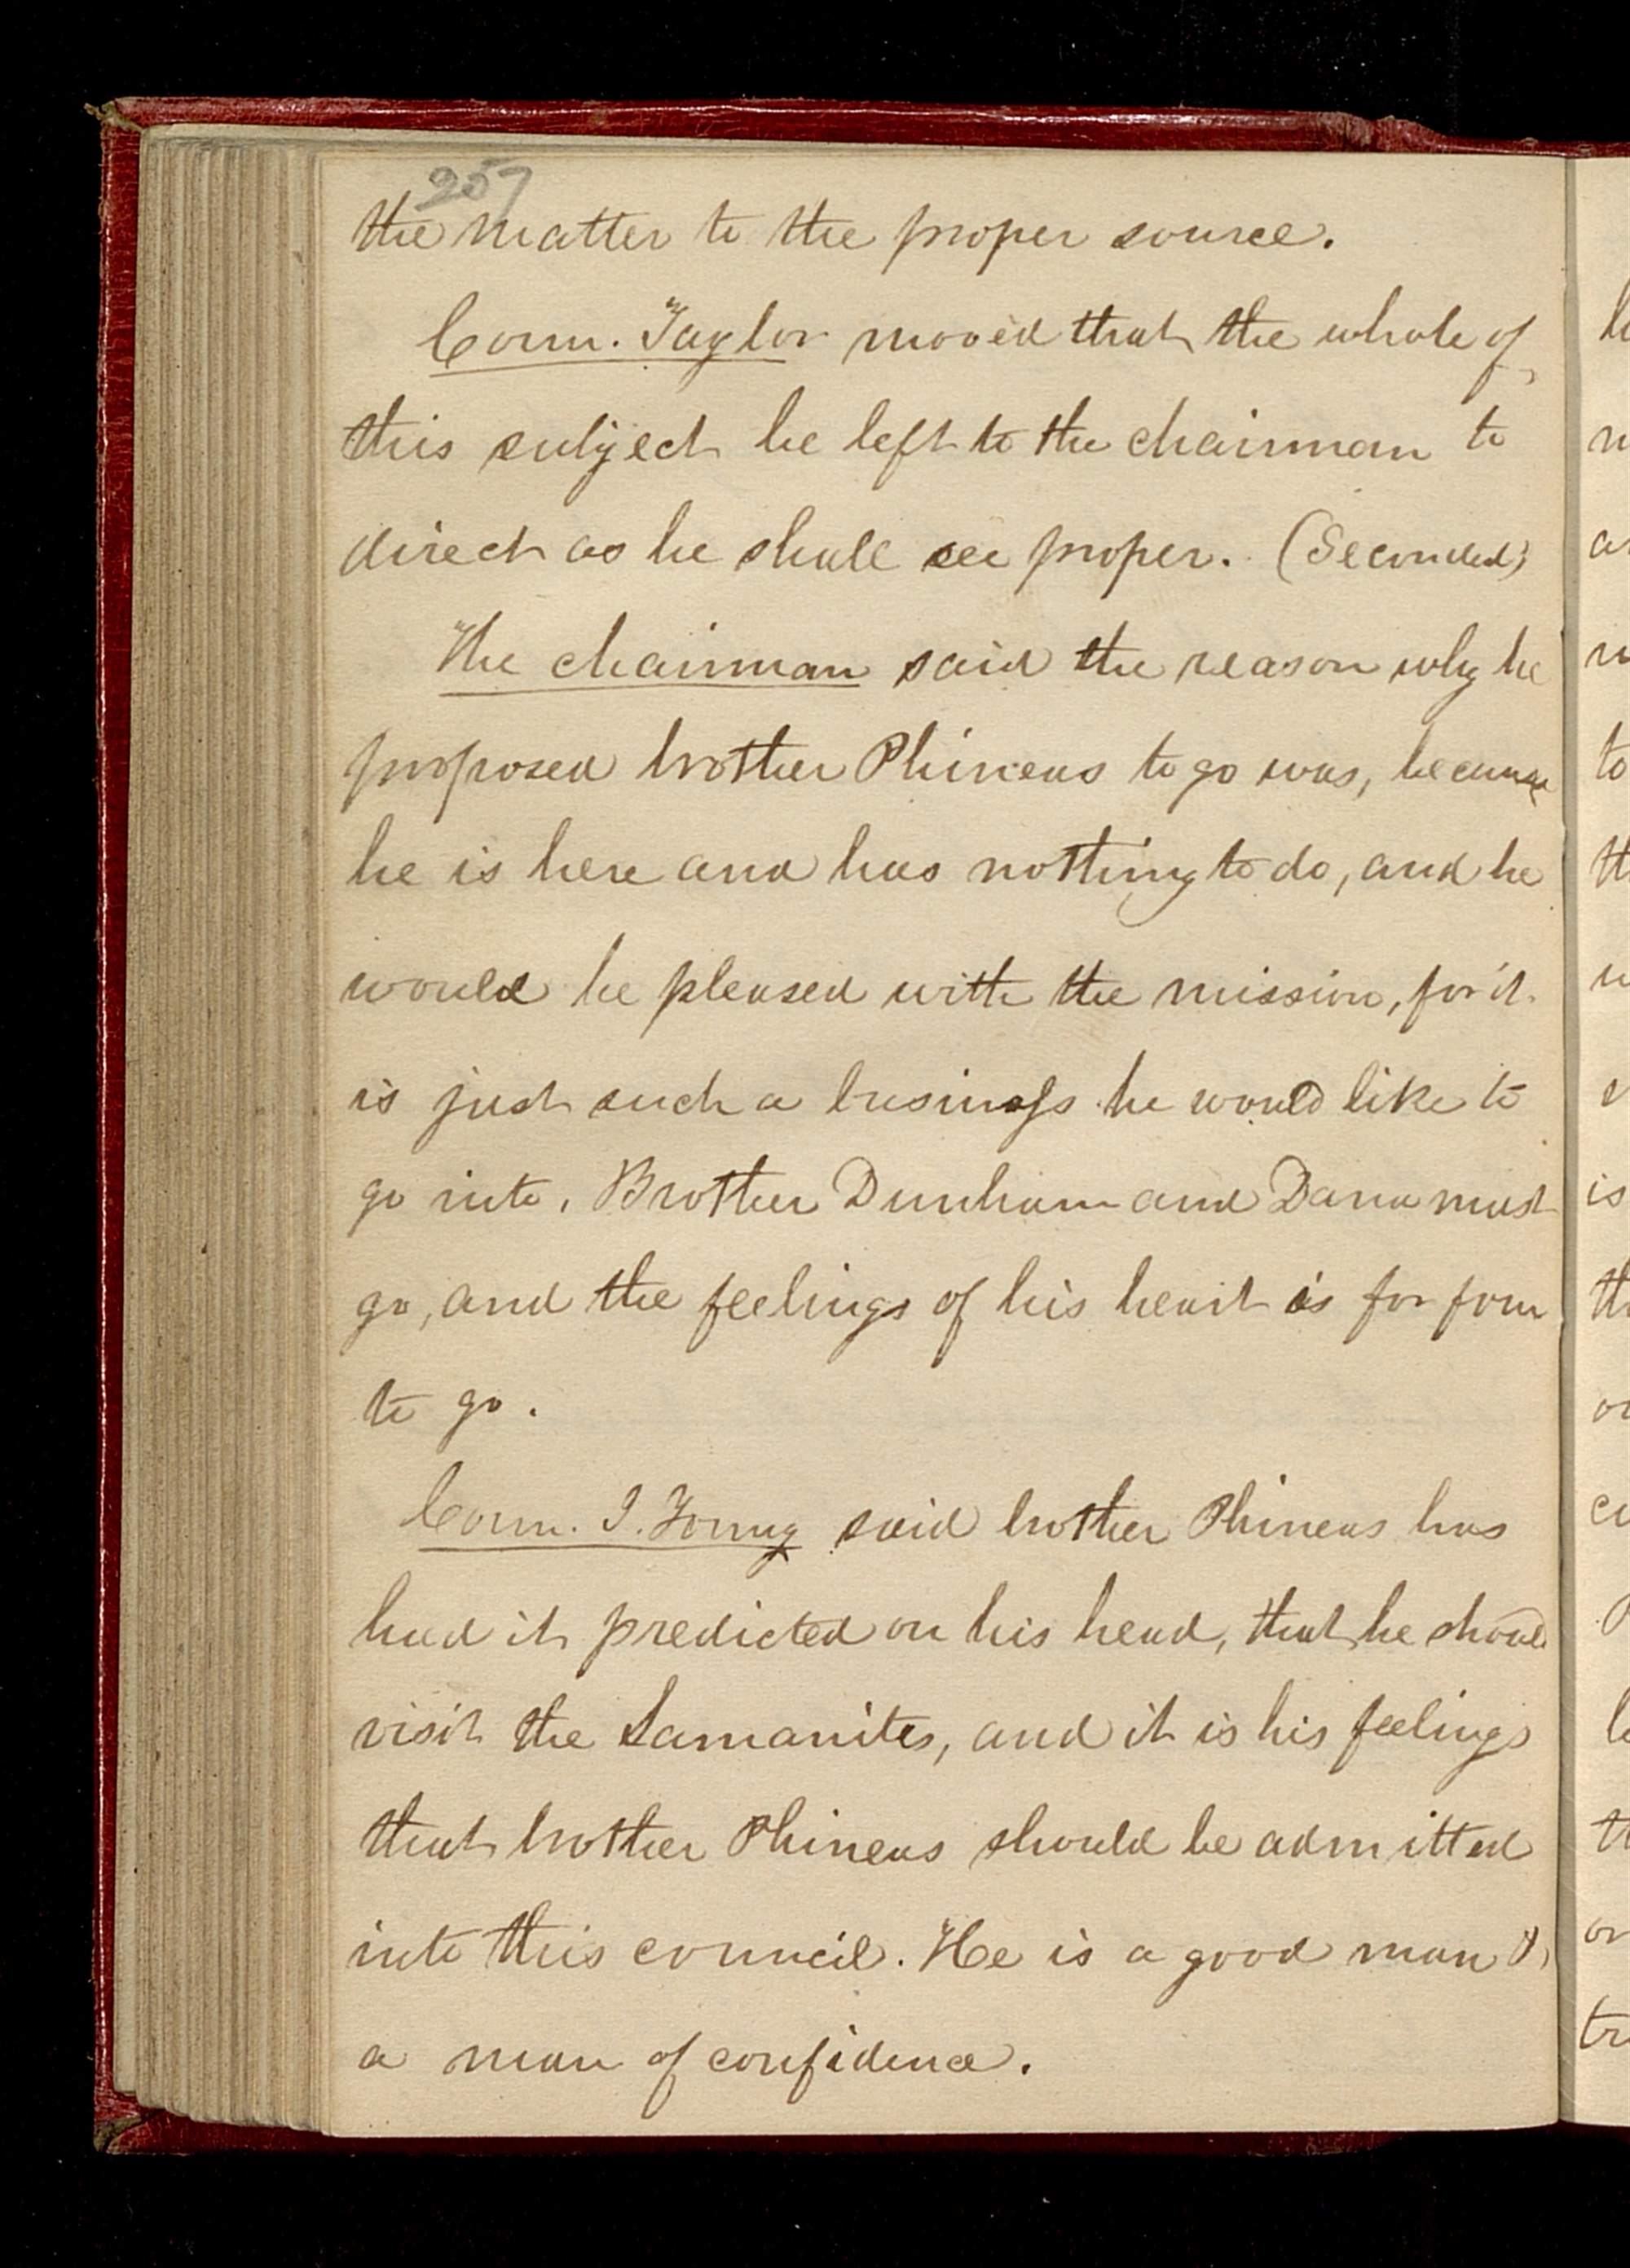 257
the matter to the proper source.
Coun. Taylor moved that the whole of
this subject be left to the chairman to
direct as he shall see proper. (Seconded)
The chairman said the reason why he
proposed brother Phineas to go was, because
he is here and has nothing to do, and he
would be pleased with the mission, for it
is just such a business he would like to
go into. Brother Dunham and Dana must
go, and the feelings of his heart is for four
to go.
Coun. J. Young said brother Phineas has
had it predicted on his head, that he should
visit the Lamanites, and it is his feelings
that brother Phineas should be admitted
into this council. He is a good man &
a man of confidence.